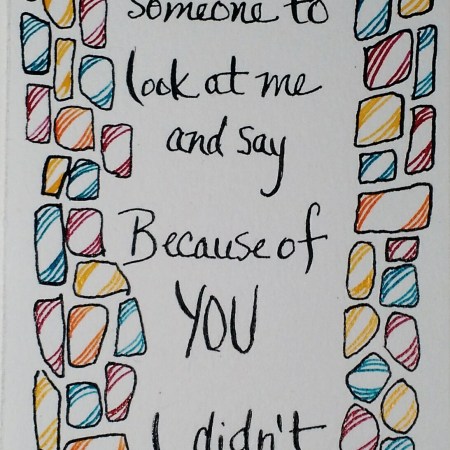 someone to
look at me
and say
Because of
YOU
I didn't